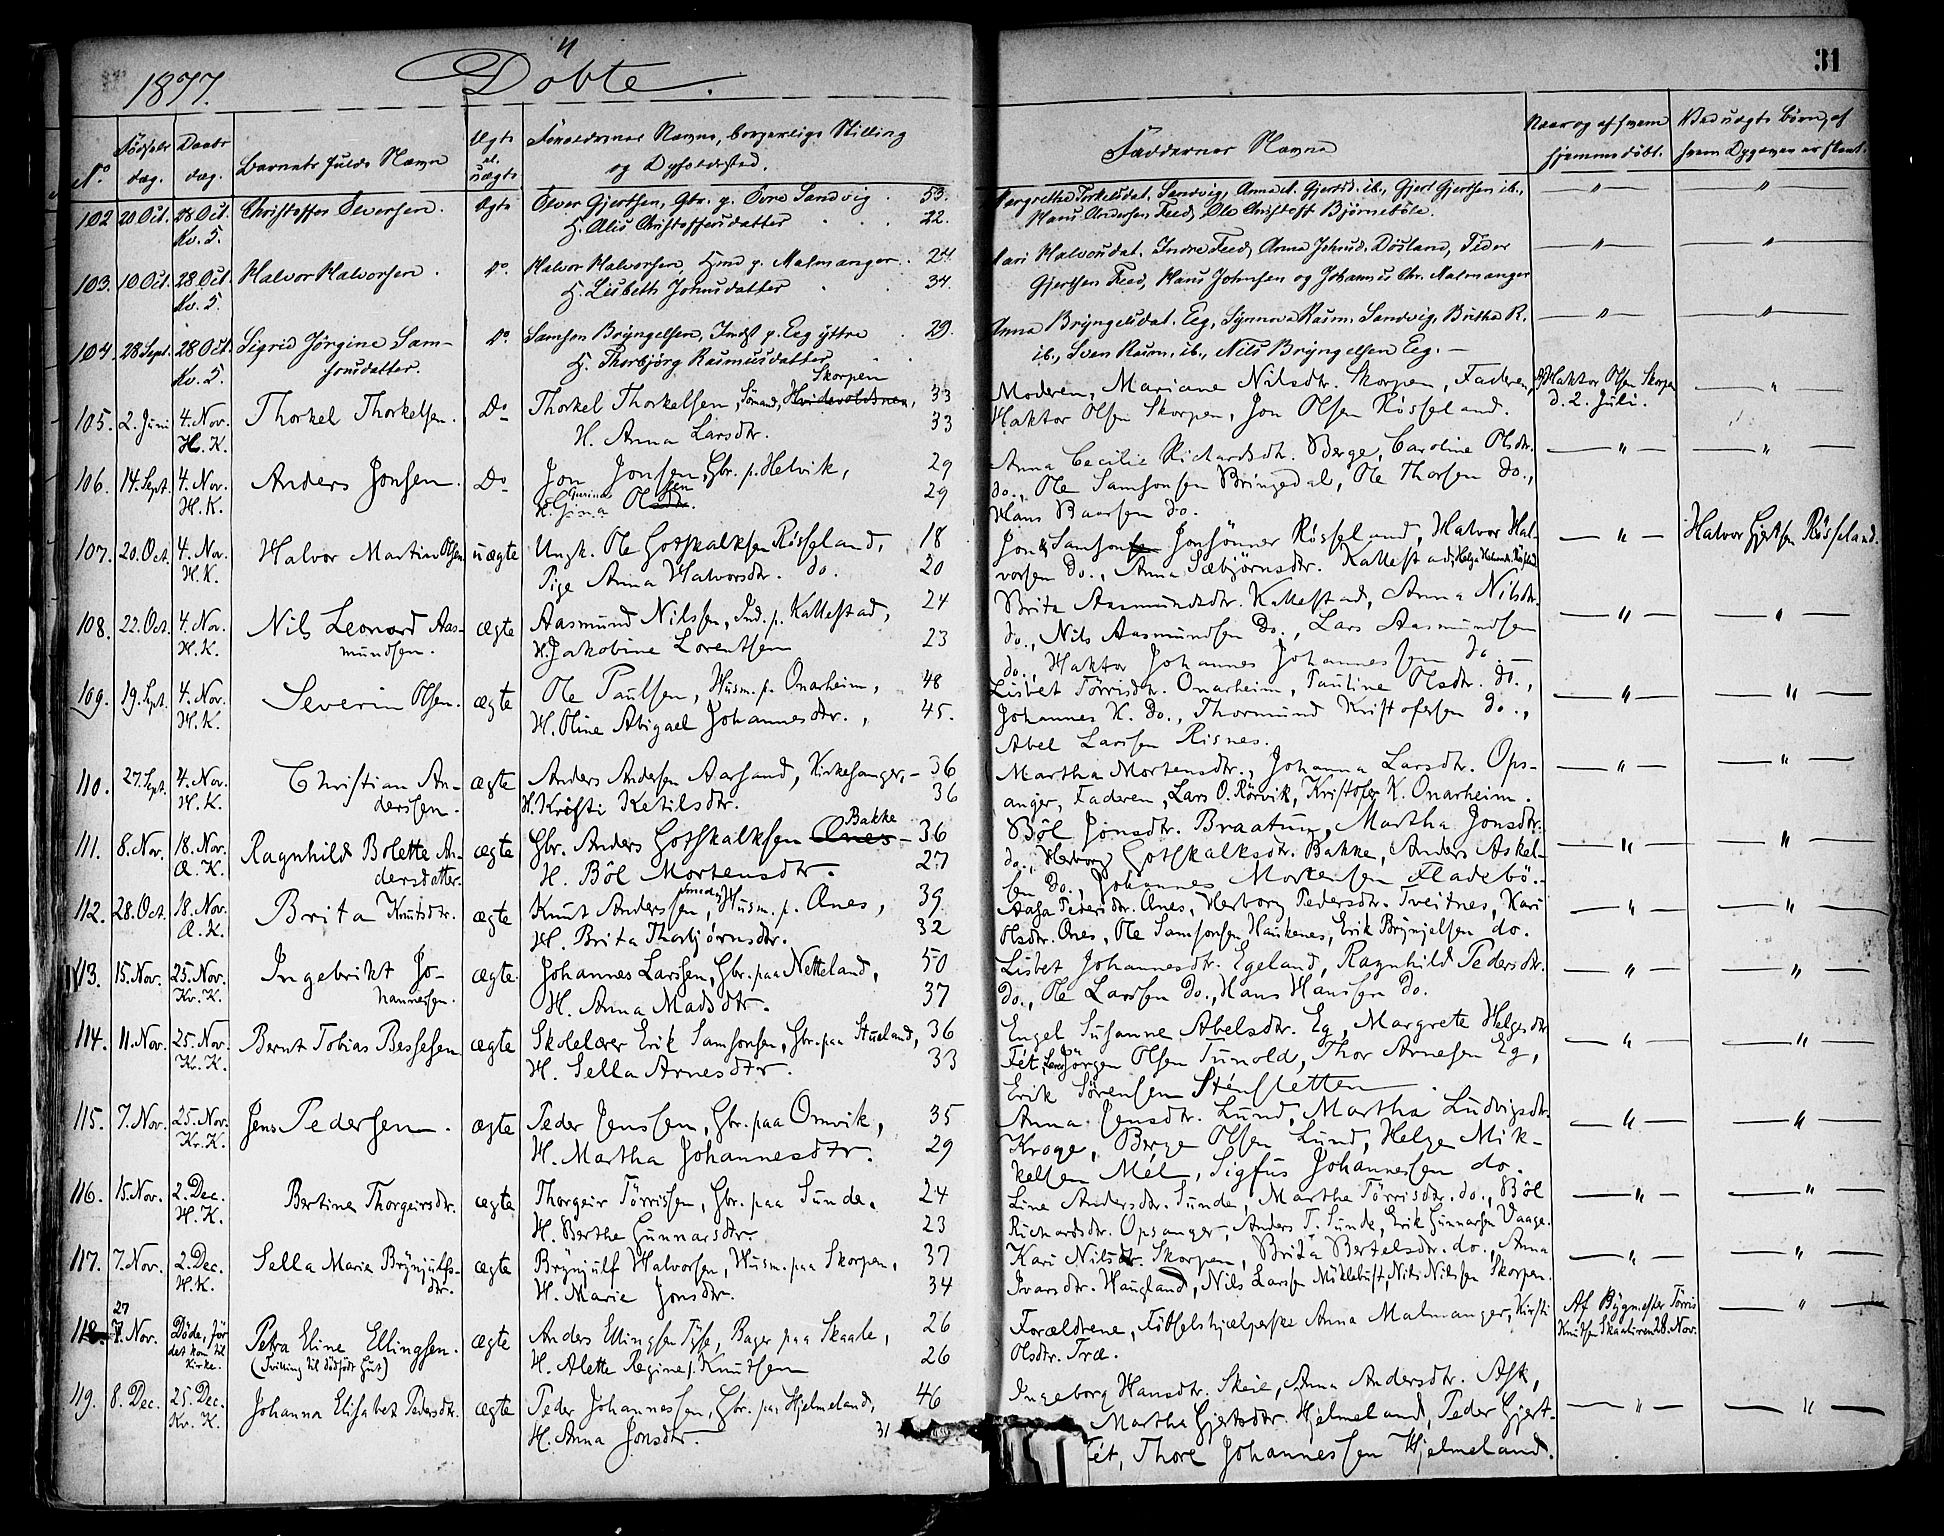 1877. Döbte. 31
No. Fødsels dag. Daabs dag. Barnets fulde Navn Ægte el. uægte Forældrenes Navne, borgerlige Stilling og Opholdssted. Faddernes Navne Naar og af hvem hjemmedöbt. Ved uægte Börn, af hvem Opgaven er skeet.
102 20 Oct. 28 Oct. Christoffer Iversen. Ægte Iver Gjertsen, Gbr. p. Övre Sandvig. 53. Margrethe Torkelsdat. Sandvig, Anna A. Gjertsd. ib., Gjert Gjertsen ib., — " — "
Kv. S. H. Alis Christoffersdatter 22. Hans Andersen Feed, Ole Christoff. Björnebøle.
103. 10 Oct. 28 Oct. Halvor Halvorsen. Do. Halvor Halvorsen, Hmd p. Malmanger. 24. Kari Halvorsdat. Indre Feed, Anna Johnsd. Dösland, Peder — " — "
Kv. S. H. Lisbeth Johnsdatter 34. Gjertsen Feed, Hans Johnsen og Johannes Chr. Malmanger
104. 28 Sept. 28 Oct. Sigrid Jörgine Sam- Do. Samson Bryngelsen, Inds p. Eeg ÿttre 29. Anna Bryngelsdat. Eeg, Synnova Rasm. Sandvig, Britha R. — " — "
Kv. S. sonsdatter. H. Thorbjörg Rasmusdatter ib., Sven Rasm. ib., Nils Bryngelsen Eeg. —
105. 2. Juni 4. Nov. Thorkel Thorkelsen. Do Thorkel Thorkelsen, Sömand, Hvidevoldsnen, Skorpen 33 Moderen, Mariane Nilsdtr. Skorpen, Faderen, Af Haktor Olsen Skorpen — " —
H. K. H. Anna Larsdtr. 33 Haktor Olsen Skorpen, Jon Olsen Rösseland. d. 2. Juli.
106. 14. Sept. 4. Nov. Anders Jonsen. Do Jon Jonsen, Gbr. p. Helvik, 29 Anna Cecilie Richardsdtr. Berge, Caroline Olsdtr. — " — "
H. K. H. Gina Olsdtr. 29 do., Ole Samsonsen Bringedal, Ole Thorsen do.,
Hans Baarsen do.
107. 20. Oct. 4. Nov. Halvor Martin Olsen uægte Ungk. Ole Gotskalksen Rösseland, 18 Jon & Samson Jonsönner Rösseland, Halvor Hal- — " — Halvor Gjertsen Rösseland.
H. K. Pige Anna Halvorsdtr. do. 20 vorsen do., Anna Sæbjörnsdtr. Kallestad,
108. 22. Oct. 4. Nov. Nils Leonard Aas- ægte Aasmund Nilssen, Ind. p. Kallestad, 24 Brita Aasmundsdtr. Kallestad, Anna Nilsdtr. — " — "
H. K. mundsen. H. Jakobine Lorentsen 23 do., Nils Aasmundsen do., Lars Aasmundsen
do., Haktor Johannes Johannessen do. —
109. 19. Sept. 4. Nov. Severin Olsen. ægte Ole Paulsen, Husm. p. Onarheim, 48 Lisbet Törrisdtr. Onarheim, Pauline Olsdtr. do., — " — "
H. K. H. Oline Abigael Johannesdtr., 45. Johannes K. do., Thormund Kristofersen do.,
Abel Larsen Risnes.
110. 27. Sept. 4. Nov. Christian An- ægte Anders Andersen Aarsand, Kirkesanger, — 36 Martha Mortensdtr., Johanna Larsdtr. Ops- — " — "
H. K. derssen. H. Kristi Ketilsdtr. 36 anger, Faderen, Lars O. Rörvik, Kristofer K. Onarheim.
111. 8. Nov. 18. Nov. Ragnhild Bolette An- ægte Gbr. Anders Gotskalksen Ænes Bakke — 36 Böl Jonsdtr. Braatun, Martha Jonsdtr. — " — "
Æ. K. dersdatter. H. Böl Mortensdtr. 27 do., Herborg Gotskalksdtr. Bakke, Anders Askel-
sen do., Johannes Mortensen Fladebö.
112. 28. Oct. 18. Nov. Brita Knutsdtr. ægte Knut Anderssen, Smed, Husm. p. Ænes, 39 Aasa Pedersdtr. Ænes, Herborg Pedersdtr. Tveitnes, Kari — " — "
Æ. K. H. Brita Thorbjörnsdtr. 32 Olsdtr. Ænes, Ole Samsonsen Haukenes, Erik Brynjelsen do.
113. 15. Nov. 25. Nov. Ingebrikt Jo- ægte Johannes Larssen, Gbr. paa Netteland, 50 Lisbet Johannesdtr. Egeland, Ragnhild Pedersdtr. — " — "
Kv. K. hannessen. H. Anna Madsdtr. 37 do., Ole Larssen do., Hans Hansen do.
114. 11. Nov. 25. Nov. Bernt Tobias Bessesen ægte Skolelærer Erik Samsonsen, Gbr. paa Stueland, 36 Engel Susanne Abelsdtr. Eg, Margrete Helgesdtr — " — "
Kv. K. H. Sella Arnesdtr. 33 Fet, Jörgen Olsen Tunold, Thor Arnesen Eg,
Erik Sörensen Stensletten.
115. 7. Nov. 25. Nov. Jens Pedersen. ægte Peder Jenssen, Gbr. paa Omvik, 35 Anna Jensdtr. Lund, Martha Ludvigsdtr. — " — "
Kv. K. H. Martha Johannesdtr. 29 Kroge, Börge Olsen Lund, Helge Mik-
kelsen Mel, Sigfus Johannessen do.
116. 15. Nov. 2. Dec. Bertine Thorgeirsdtr. ægte Thorgeir Törrissen, Gbr. paa Sunde. 24 Line Andersdtr. Sunde, Martha Törrisdtr. do., Böl — " — "
H. K. H. Berthe Gunnarsdtr. 23 Richardsdtr. Opsanger, Anders T. Sunde, Erik Gunnarsen Vaage.
117. 7. Nov. 2. Dec. Sella Marie Brynjulfs- ægte Brynjulf Halvorsen, Husm. paa Skorpen, 37 Kari Nilsdtr. Skorpen, Brita Bertelsdtr. do., Anna — " — "
H. K. dtr. H. Marie Jonsdtr. 34 Ivarsdtr. Haugland, Nils Larsen Myklebust, Nils Nilssen Skorpen.
118. 27 Nov. Döde, för Petra Eline Ellingsen. ægte Anders Ellingsen Tyse, Bager paa Skaale, 26 Forældrene, Födselshjælperske Anna Malmanger, Kirsti Af Bygmester Törris — " —
det kom til Kirke. (Tvilling til dödfödt Gut) H. Alette Regine f. Knutsen 26 Olsdtr. Træ. Knutsen Skaaluren 28. Nov.
119. 8. Dec. 25. Dec. Johanna Elisabet Pedersdtr. ægte Peder Johannessen, Gbr. paa Hjelmeland, 46 Ingeborg Hansdtr. Skeie, Anna Andersdtr. Ask, — " — "
Kv. K. H. Anna Jonsdtr. 31 Martha Gjertsdtr. Hjelmeland, Peder Gjert-
Fet, Thore Johannessen Hjelmeland.